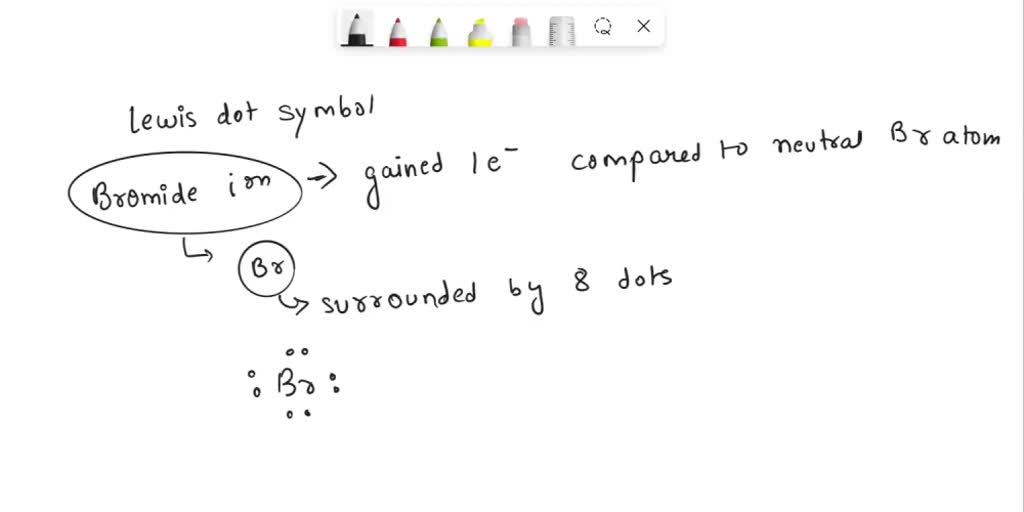 Lewis dot symbol
Bromide ion → gained 1e⁻ compared to neutral Br atom
Br
surrounded by 8 dots
Br